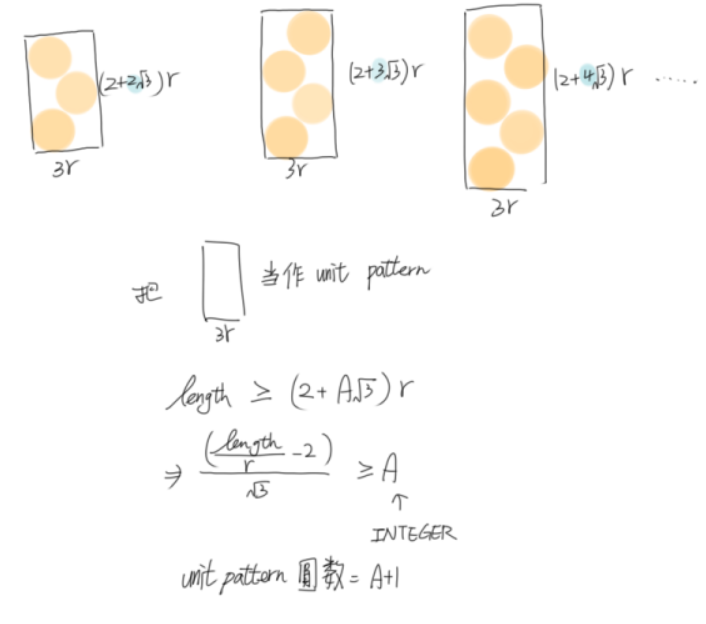 (2+2√3)r
3r
(2+3√3)r
3r
(2+4√3)r ......
3r
把
3r
当作 unit pattern
length ≥ (2+A√3)r
⇒ (length/r -2)/√3 ≥ A
↑
INTEGER
unit pattern 圓数 = A+1